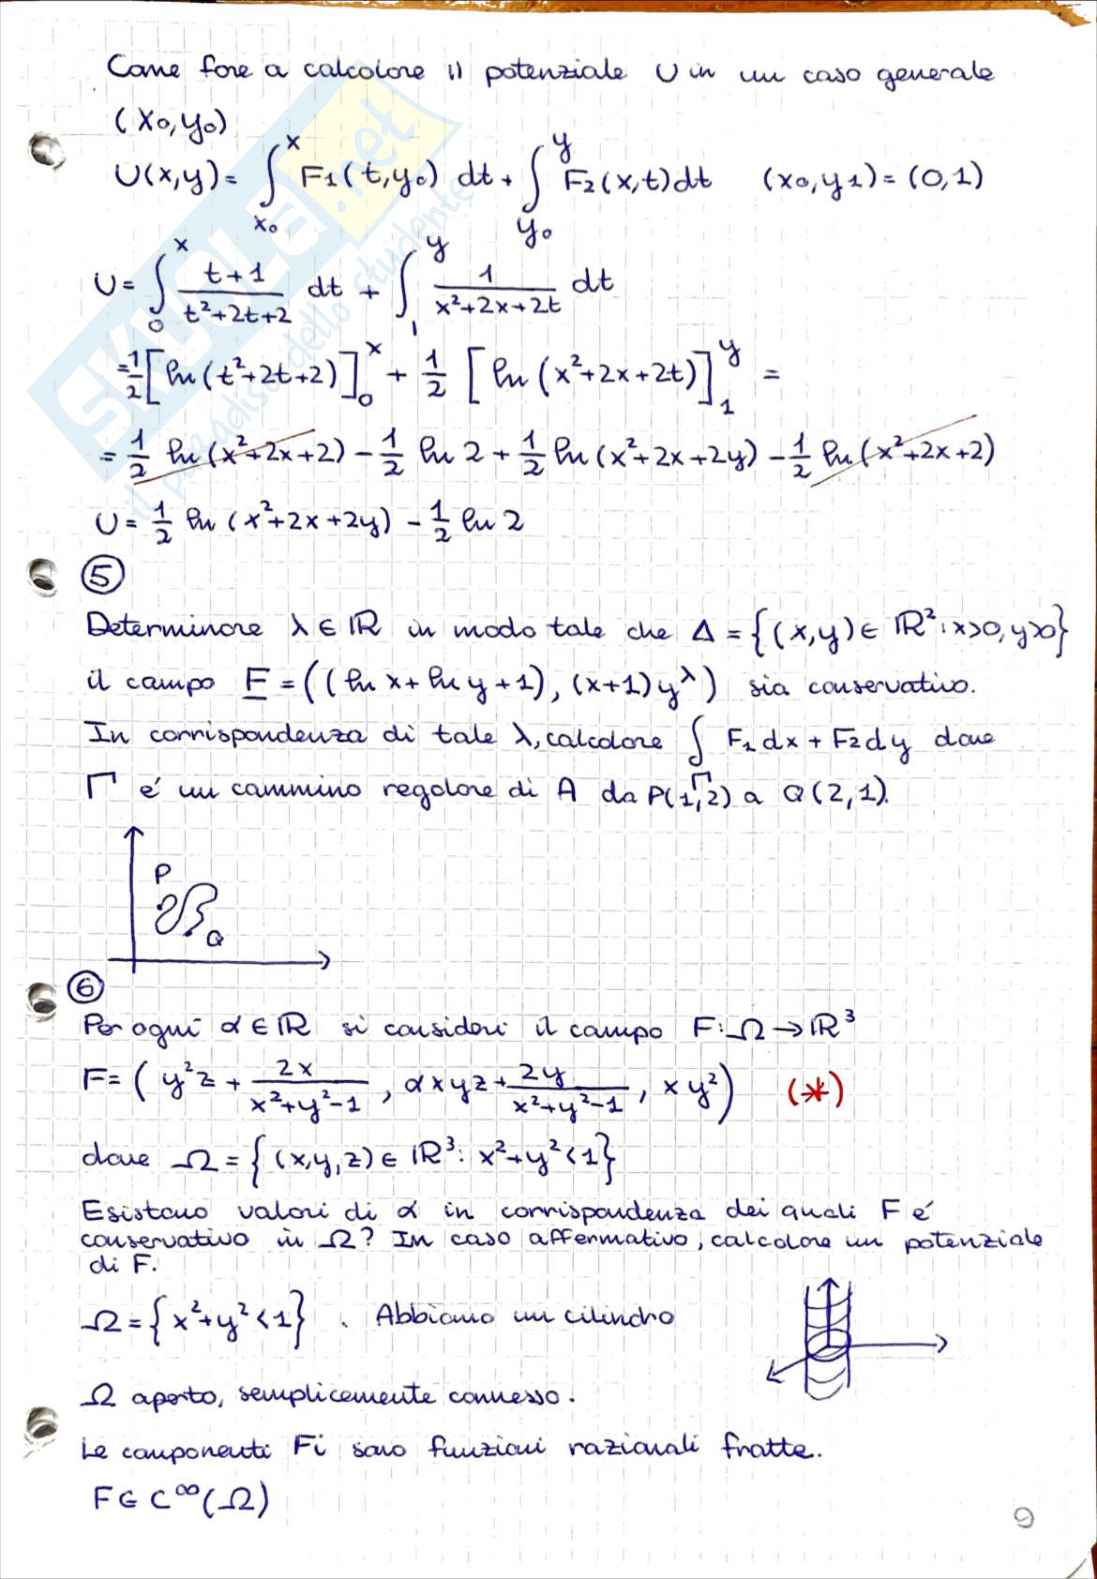 Come fare a calcolare il potenziale U in un caso generale
(x₀,y₀)
U(x,y)= ∫_{x₀}^{x} F₁(t,y₀) dt + ∫_{y₀}^{y} F₂(x,t)dt (x₀,y₁)=(0,1)
U= ∫_{0}^{x} (t+1)/(t²+2t+2) dt + ∫_{1}^{y} 1/(x²+2x+2t) dt
=1/2 [ln(t²+2t+2)]_{0}^{x} + 1/2 [ln(x²+2x+2t)]_{1}^{y} =
= 1/2 ln(x²+2x+2) - 1/2 ln 2 + 1/2 ln(x²+2x+2y) - 1/2 ln(x²+2x+2)
U= 1/2 ln(x²+2x+2y) - 1/2 ln 2
⑤
Determinare λ∈ℝ in modo tale che Δ={(x,y)∈ℝ²: x>0, y>0}
il campo F=((ln x+ln y+1), (x+1)y^λ) sia conservativo.
In corrispondenza di tale λ, calcolare ∫_Γ F₁dx+F₂dy dove
Γ é un cammino regolare di A da P(1,2) a Q(2,1).
P
Q
⑥
Per ogni α∈ℝ si consideri il campo F:Ω→ℝ³
F=( y²z + 2x/(x²+y²-1), αxyz + 2y/(x²+y²-1), xy²) (*)
dove Ω={(x,y,z)∈ℝ³: x²+y²<1}
Esistono valori di α in corrispondenza dei quali F é
conservativo in Ω? In caso affermativo, calcolare un potenziale
di F.
Ω={x²+y²<1}. Abbiamo un cilindro
Ω aperto, semplicemente connesso.
Le componenti Fi sono funzioni razionali fratte.
F∈C^∞(Ω)
9
SKUOLA.net
il paradiso dello studente